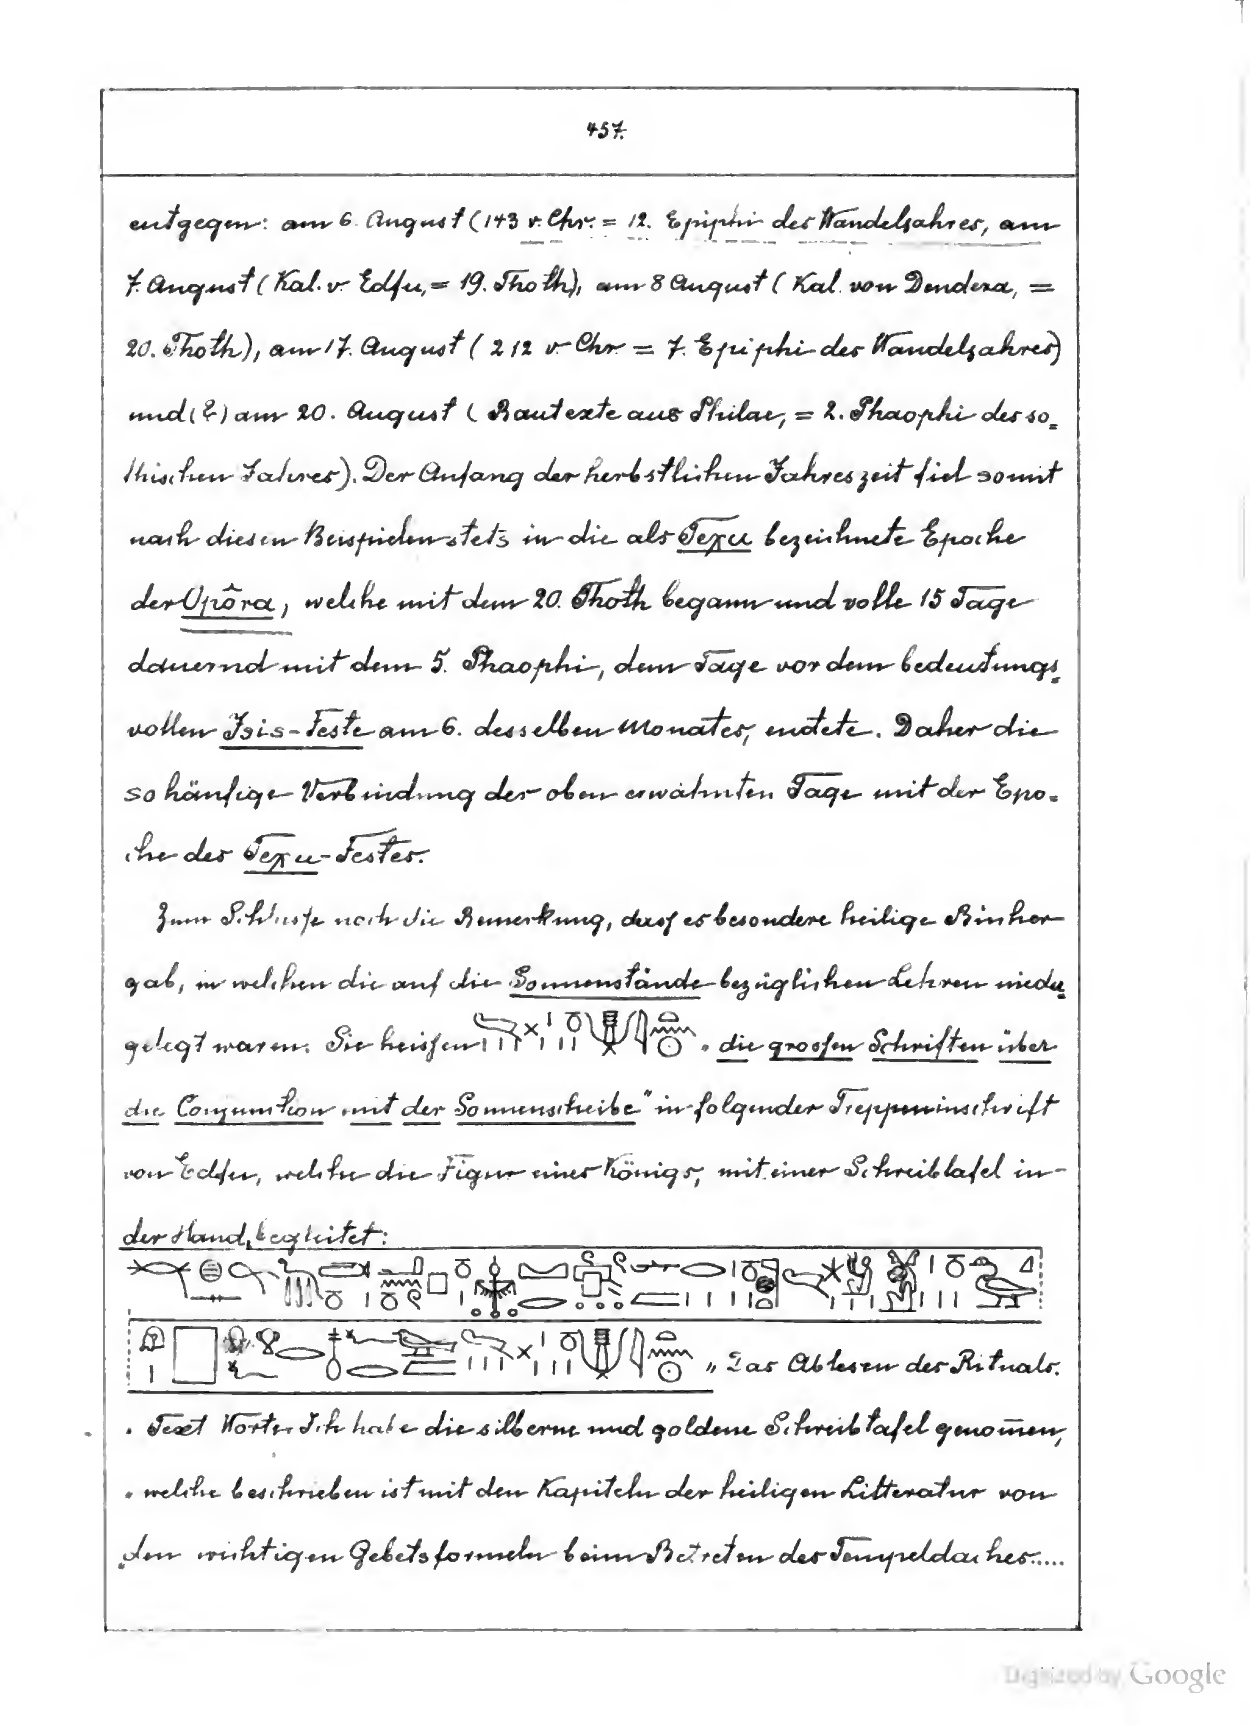 457.
entgegen: am 6. August (143 v. Chr. = 12. Epiphi des Wandeljahres, am
7. August (Kal. v. Edfu, = 19. Thoth), am 8 August (Kal. von Dendera, =
20. Thoth), am 17. August (212 v. Chr. = 7. Epiphi des Wandeljahres)
und (?) am 20. August (Bautexte aus Philae, = 2. Phaophi des so=
thischen Jahres). Der Anfang der herbstlichen Jahreszeit fiel somit
nach diesen Beispielen stets in die als Texu bezeichnete Epoche
der Opôra, welche mit dem 20. Thoth begann und volle 15 Tage
dauernd mit dem 5. Phaophi, dem Tage vor dem bedeutungs=
vollen Isis-Feste am 6. desselben Monates, endete. Daher die
so häufige Verbindung der oben erwähnten Tage mit der Epo=
che des Texu-Festes.
Zum Schlusse noch die Bemerkung, dass es besondere heilige Bücher
gab, in welchen die auf die Sonnenstände bezüglichen Lehren nieder=
gelegt waren. Sie heissen „die grossen Schriften über
die Conjunktion mit der Sonnenscheibe" in folgender Treppeninschrift
von Edfu, welche die Figur eines Königs, mit einer Schreibtafel in
der Hand, begleitet:
„Das Ablesen des Rituals.
„Text Worte: Ich habe die silberne und goldene Schreibtafel genom̄en,
„welche beschrieben ist mit den Kapiteln der heiligen Litteratur von
„den wichtigen Gebetsformeln beim Betreten des Tempeldaches.....
Digitized by Google